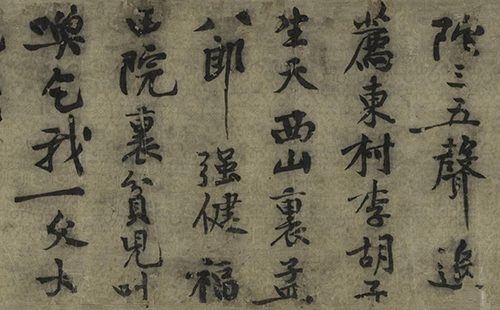 陁三五聲追
薦東村李胡子
生天西山裏孟
八郎强健福
田院裏貧兒叫
喚乞我一文大